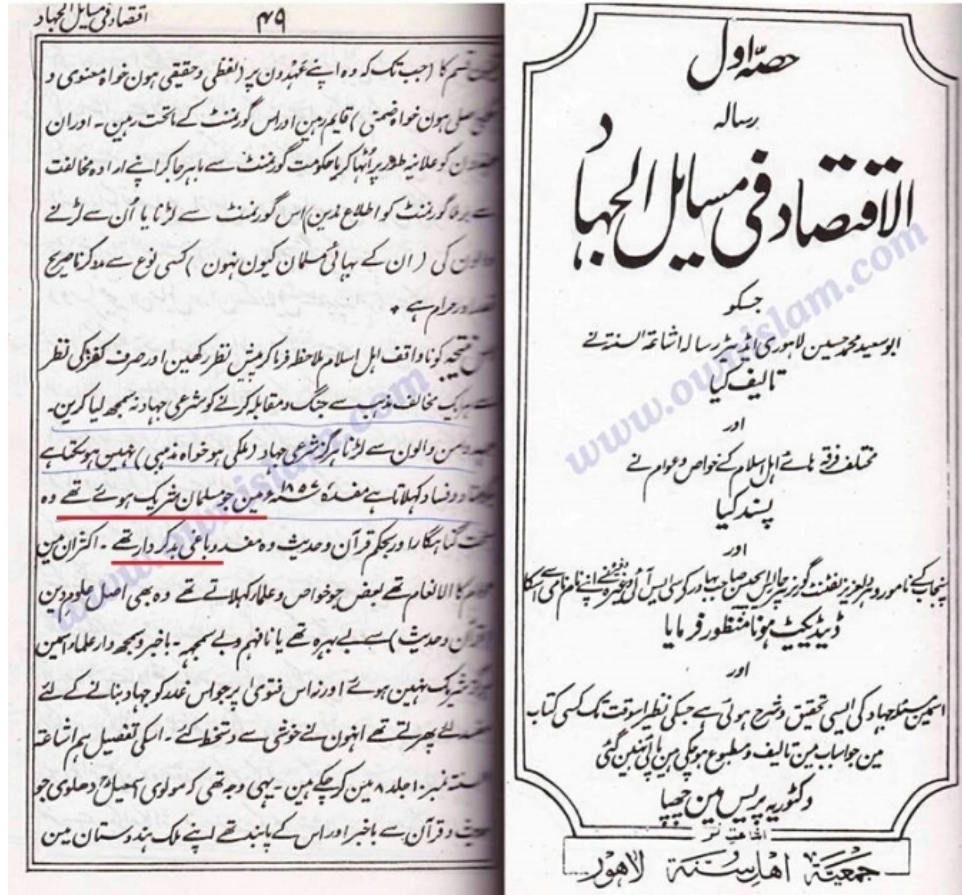 حصہ اول
رسالہ
الاقتصاد فی مسایل الجہاد
جسکو
ابو سعید محمد حسین لاہوری اڈیٹر رسالہ اشاعۃ السنۃ نے
تالیف کیا
اور
مختلف فرقہ ہائے اہل اسلام کے خواص و عوام نے
پسند کیا
اور
پنجاب کے نامور و ہر دلعزیز لفٹنٹ گورنر سر چارلس ایچسن صاحب بہادر کے سی ایس آئی وغیرہ نے اپنے نام نامی سے اسکا
ڈیڈیکیٹ ہونا منظور فرمایا
اور
اسمین مسئلہ جہاد کی ایسی تحقیق و شرح ہوئی ہے جسکی نظیر اسوقت تک کسی کتاب
مین جو اس باب مین تالیف و مطبوع ہو چکی ہین پائی نہین گئی
وکٹوریہ پریس مین چھپا
جمعیۃ اہل سنۃ لاہور
www.ownislam.com
اقتصاد فی مسایل الجہاد
۴۹
قسم کا (جب تک کہ وہ اپنے عہدون پر (لفظی و حقیقی ہون خواہ معنوی و
اصلی ہون خواہ ضمنی) قایم رہین اور اس گورنمنٹ کے ماتحت رہین۔ اور ان
کو علانیہ طور پر اُٹھا کر یا حکومت گورنمنٹ سے باہر جا کر اپنے ارادہ مخالفت
گورنمنٹ کو اطلاع ندین) اس گورنمنٹ سے لڑنا یا اُن سے لڑنے
والون کی (ان کے بہائی مسلمان کیون نہون) کسی نوع سے مدد کرنا صریح
اور حرام ہے *
اس نتیجہ کو ناواقف اہل اسلام ملاحظہ فرما کر پیش نظر رکھین اور صرف کفر کی نظر
سے ہر ایک مخالف مذہب سے جنگ و مقابلہ کرنے کو شرعی جہاد نہ سمجھ لیا کرین۔
و امن والون سے لڑنا ہرگز شرعی جہاد (ملکی ہو خواہ مذہبی) نہین ہو سکتا ہے
و فساد کہلاتا ہے مفسدہ ۱۸۵۷ء مین جو مسلمان شریک ہوئے تھے وہ
سخت گناہگار اور بحکم قرآن و حدیث وہ مفسد و باغی بدکردار تھے۔ اکثر ان مین
عوام کالانعام تھے بعض جو خواص و علما کہلاتے تھے وہ بھی اصل علوم دین
(قرآن و حدیث) سے بے بہرہ تھے یا نافہم و بے سمجہ۔ باخبر و سمجھ دار علما اسمین
ہرگز شریک نہین ہوئے اور نہ اس فتوی پر جو اس غدر کو جہاد بنانے کے لئے
مفسد لئے پھرتے تھے انہون نے خوشی سے دستخط کئے۔ اسکی تفصیل ہم اشاعۃ
السنۃ نمبر ۱۰ جلد ۸ مین کر چکے ہین۔ یہی وجہ تھی کہ مولوی اسمعیل دھلوی جو
حدیث و قرآن سے باخبر اور اس کے پابند تھے اپنے ملک ہندوستان مین
www.ownislam.com